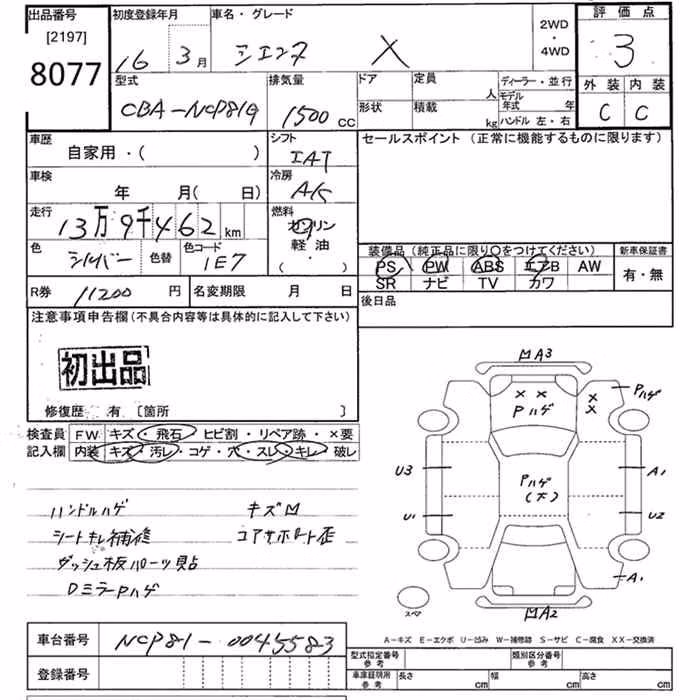 出品番号
[2197]
8077
初度登録年月
16 3月
車名・グレード
シエンタ X
2WD
・
4WD
評価点
3
外装 内装
C C
型式
CBA-NCP81G
排気量
1500 CC
ドア
形状
定員 人
積載 kg
ディーラー・並行
モデル
年式 年
ハンドル 左・右
車歴
自家用・( )
シフト
IAT
セールスポイント (正常に機能するものに限ります)
車検
年 月( 日)
冷房
A/C
走行
13万9千462 km
燃料
ガソリン
軽・油
・( )
色
シルバー
色替
色コード
1E7
装備品 (純正品に限り○をつけてください)
PS PW ABS エアB AW
SR ナビ TV カワ
新車保証書
有・無
R券 11200 円
名変期限 月 日
後日品
注意事項申告欄(不具合内容等は具体的に記入して下さい)
初出品
修復歴 有 〔箇所 〕
検査員
記入欄
FW キズ・飛石・ヒビ割・リペア跡・×要
内装 キズ・汚レ・コゲ・穴・スレ・キレ・破レ
ハンドルハゲ キズ凹
シートキレ補修 コアサポート歪
ダッシュ板パーツ貼
Dミラー Pハゲ
凹A3
Pハゲ
× ×
Pハゲ
×
×
Pハゲ
(下)
U3
A1
U1
U2
A1
スペア
凹A2
A-キズ E-エクボ U-凹み W-補修跡 S-サビ C-腐食 XX-交換済
車台番号 NCP81-0045583
登録番号
型式指定番号
参考
類別区分番号
参考
車庫証明所
参考
長さ cm
幅 cm
高さ cm